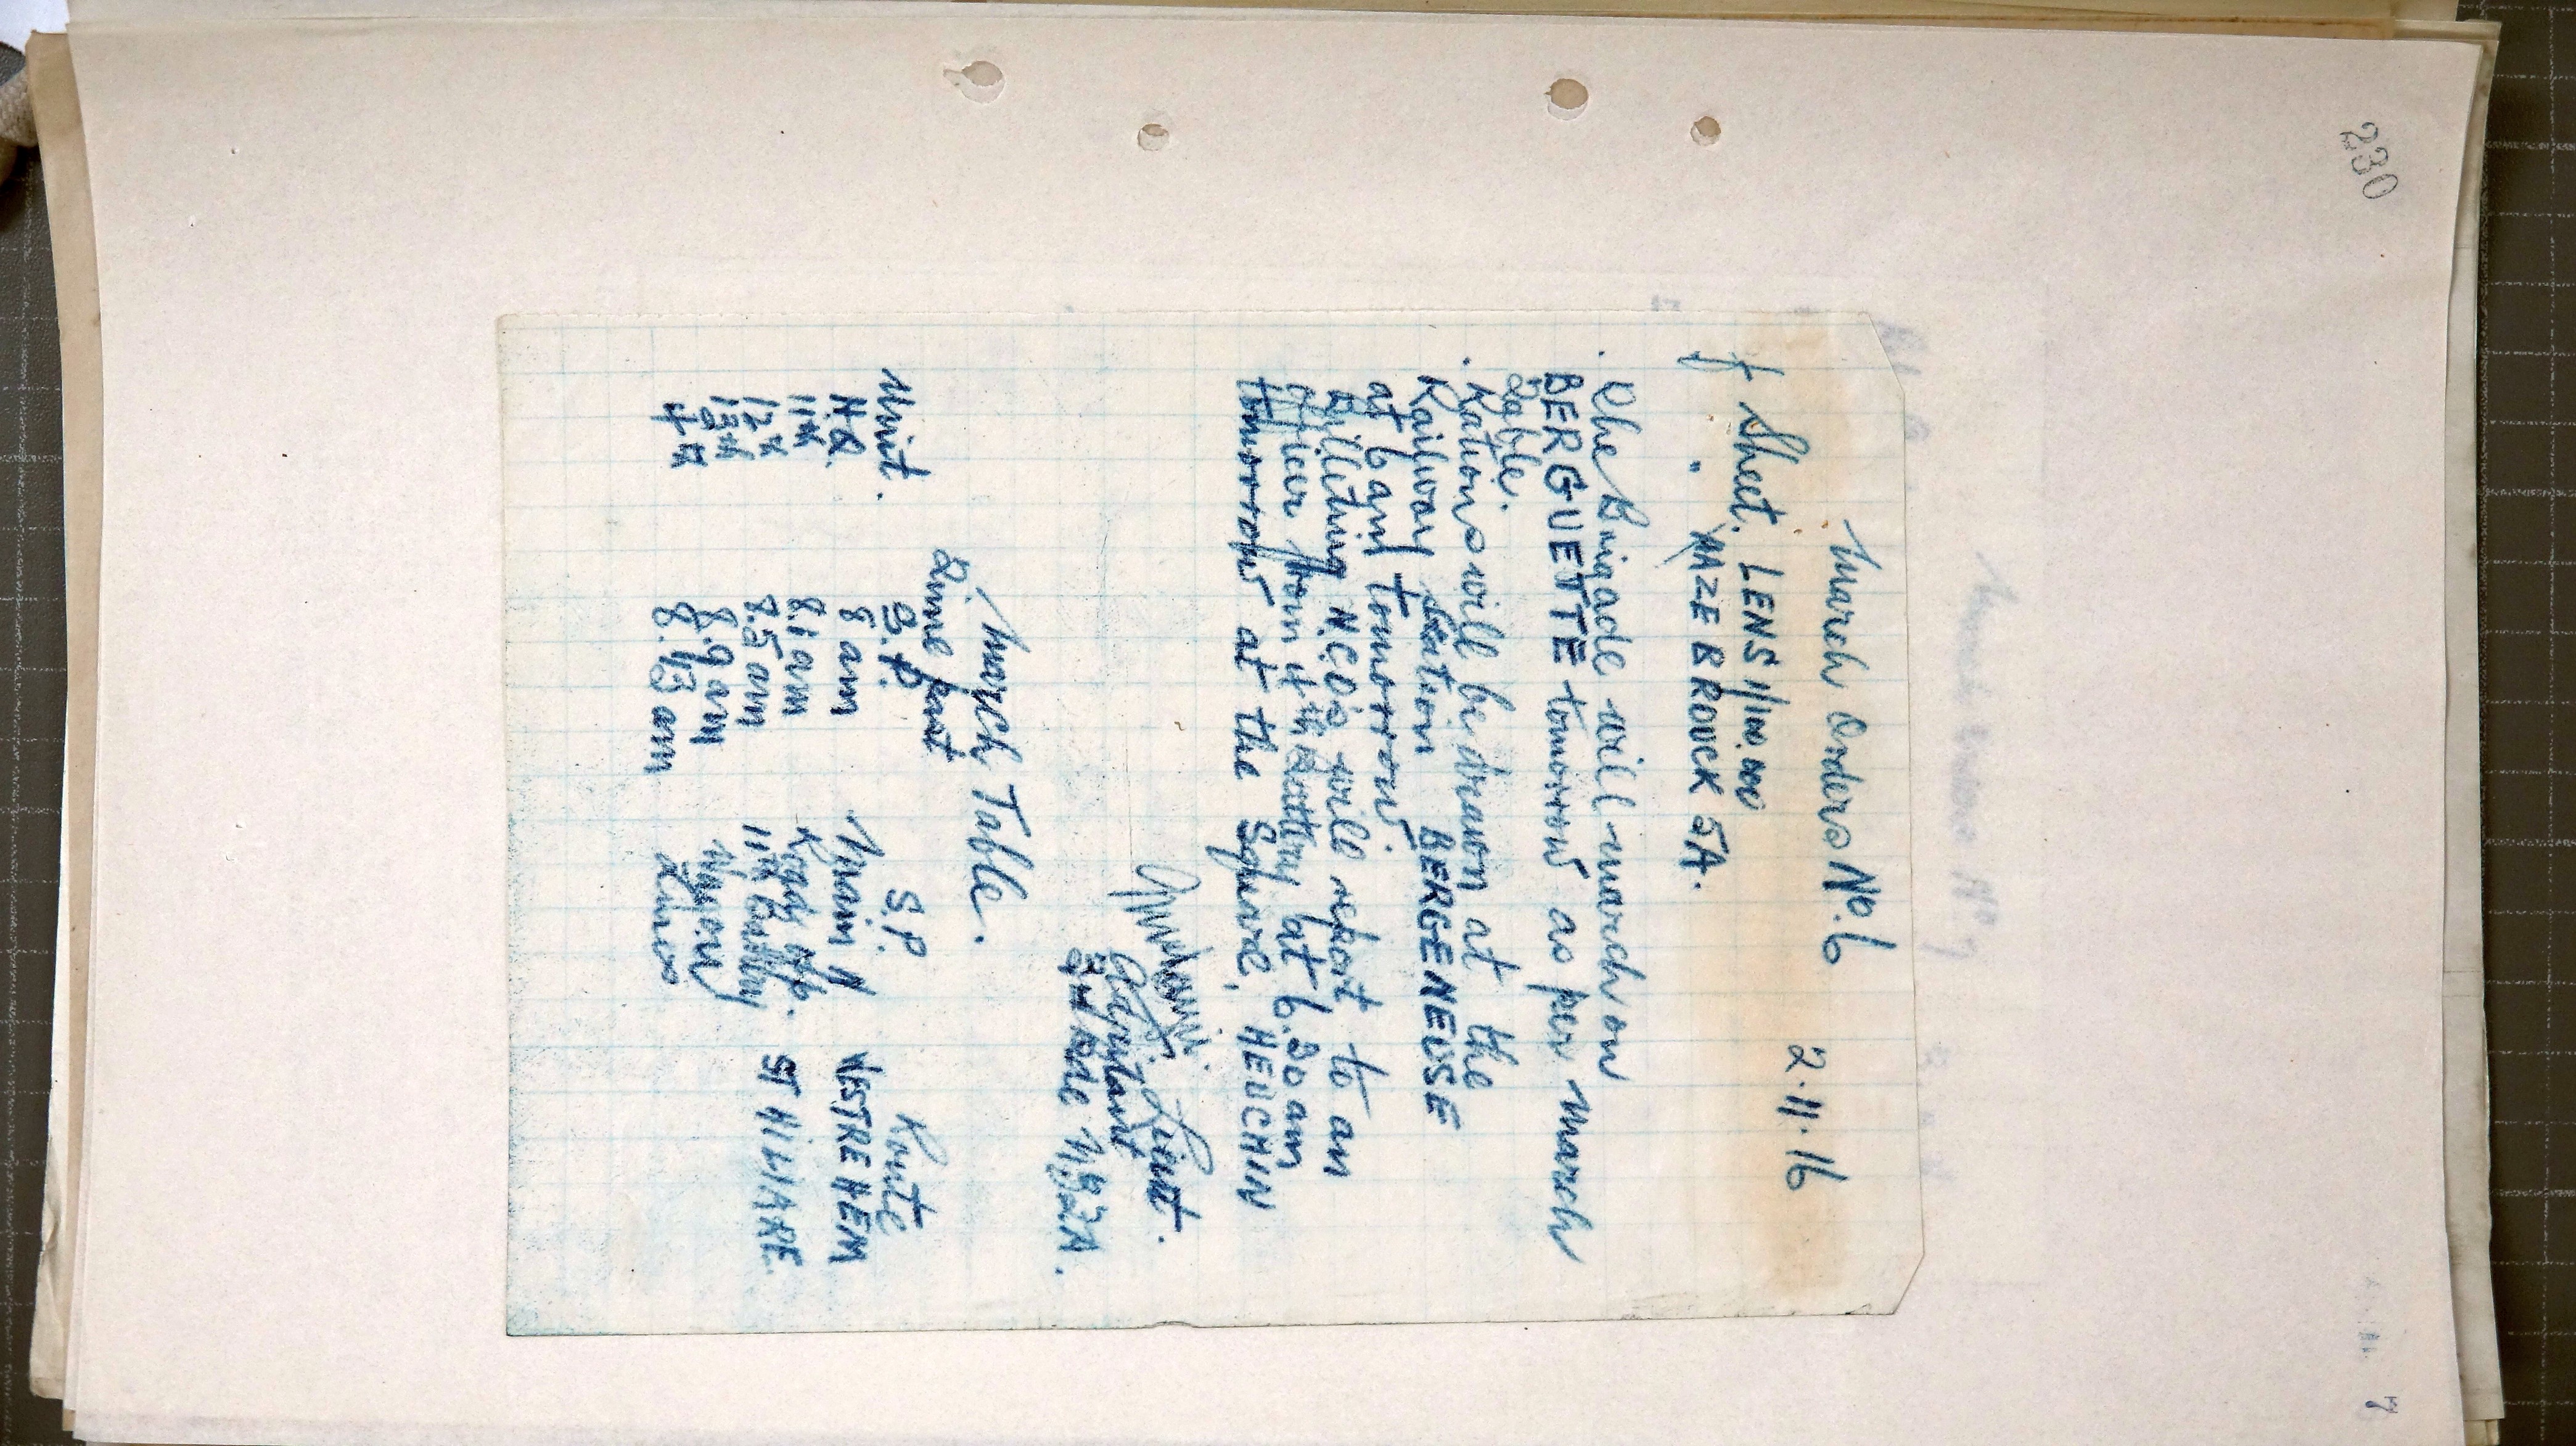 230
March Orders No. 6
2.11.16
f Sheet. LENS 1/100.000
" HAZEBROUCK 5A.
. The Brigade will march on
BERGUETTE tomorrow as per march
Table.
. Rations will be drawn at the
Railway Station BERGENEUSE
at 6 am tomorrow.
Billeting N.C.O's will report to an
officer from 11th Battery at 6.30 am
tomorrow at the Square, HEUCHIN
Lieut.
Adjutant
Bde N.Z.F.A.
March Table.
Unit. Time past S.P. S.P. Route
H.Q. 8 am Main X WESTREHEM
11th 8.1 am Roads nr. ST HILIARE.
12th 8.5 am 11th Battery
13th 8.9 am Wagon
4th 8.13 am Lines
7